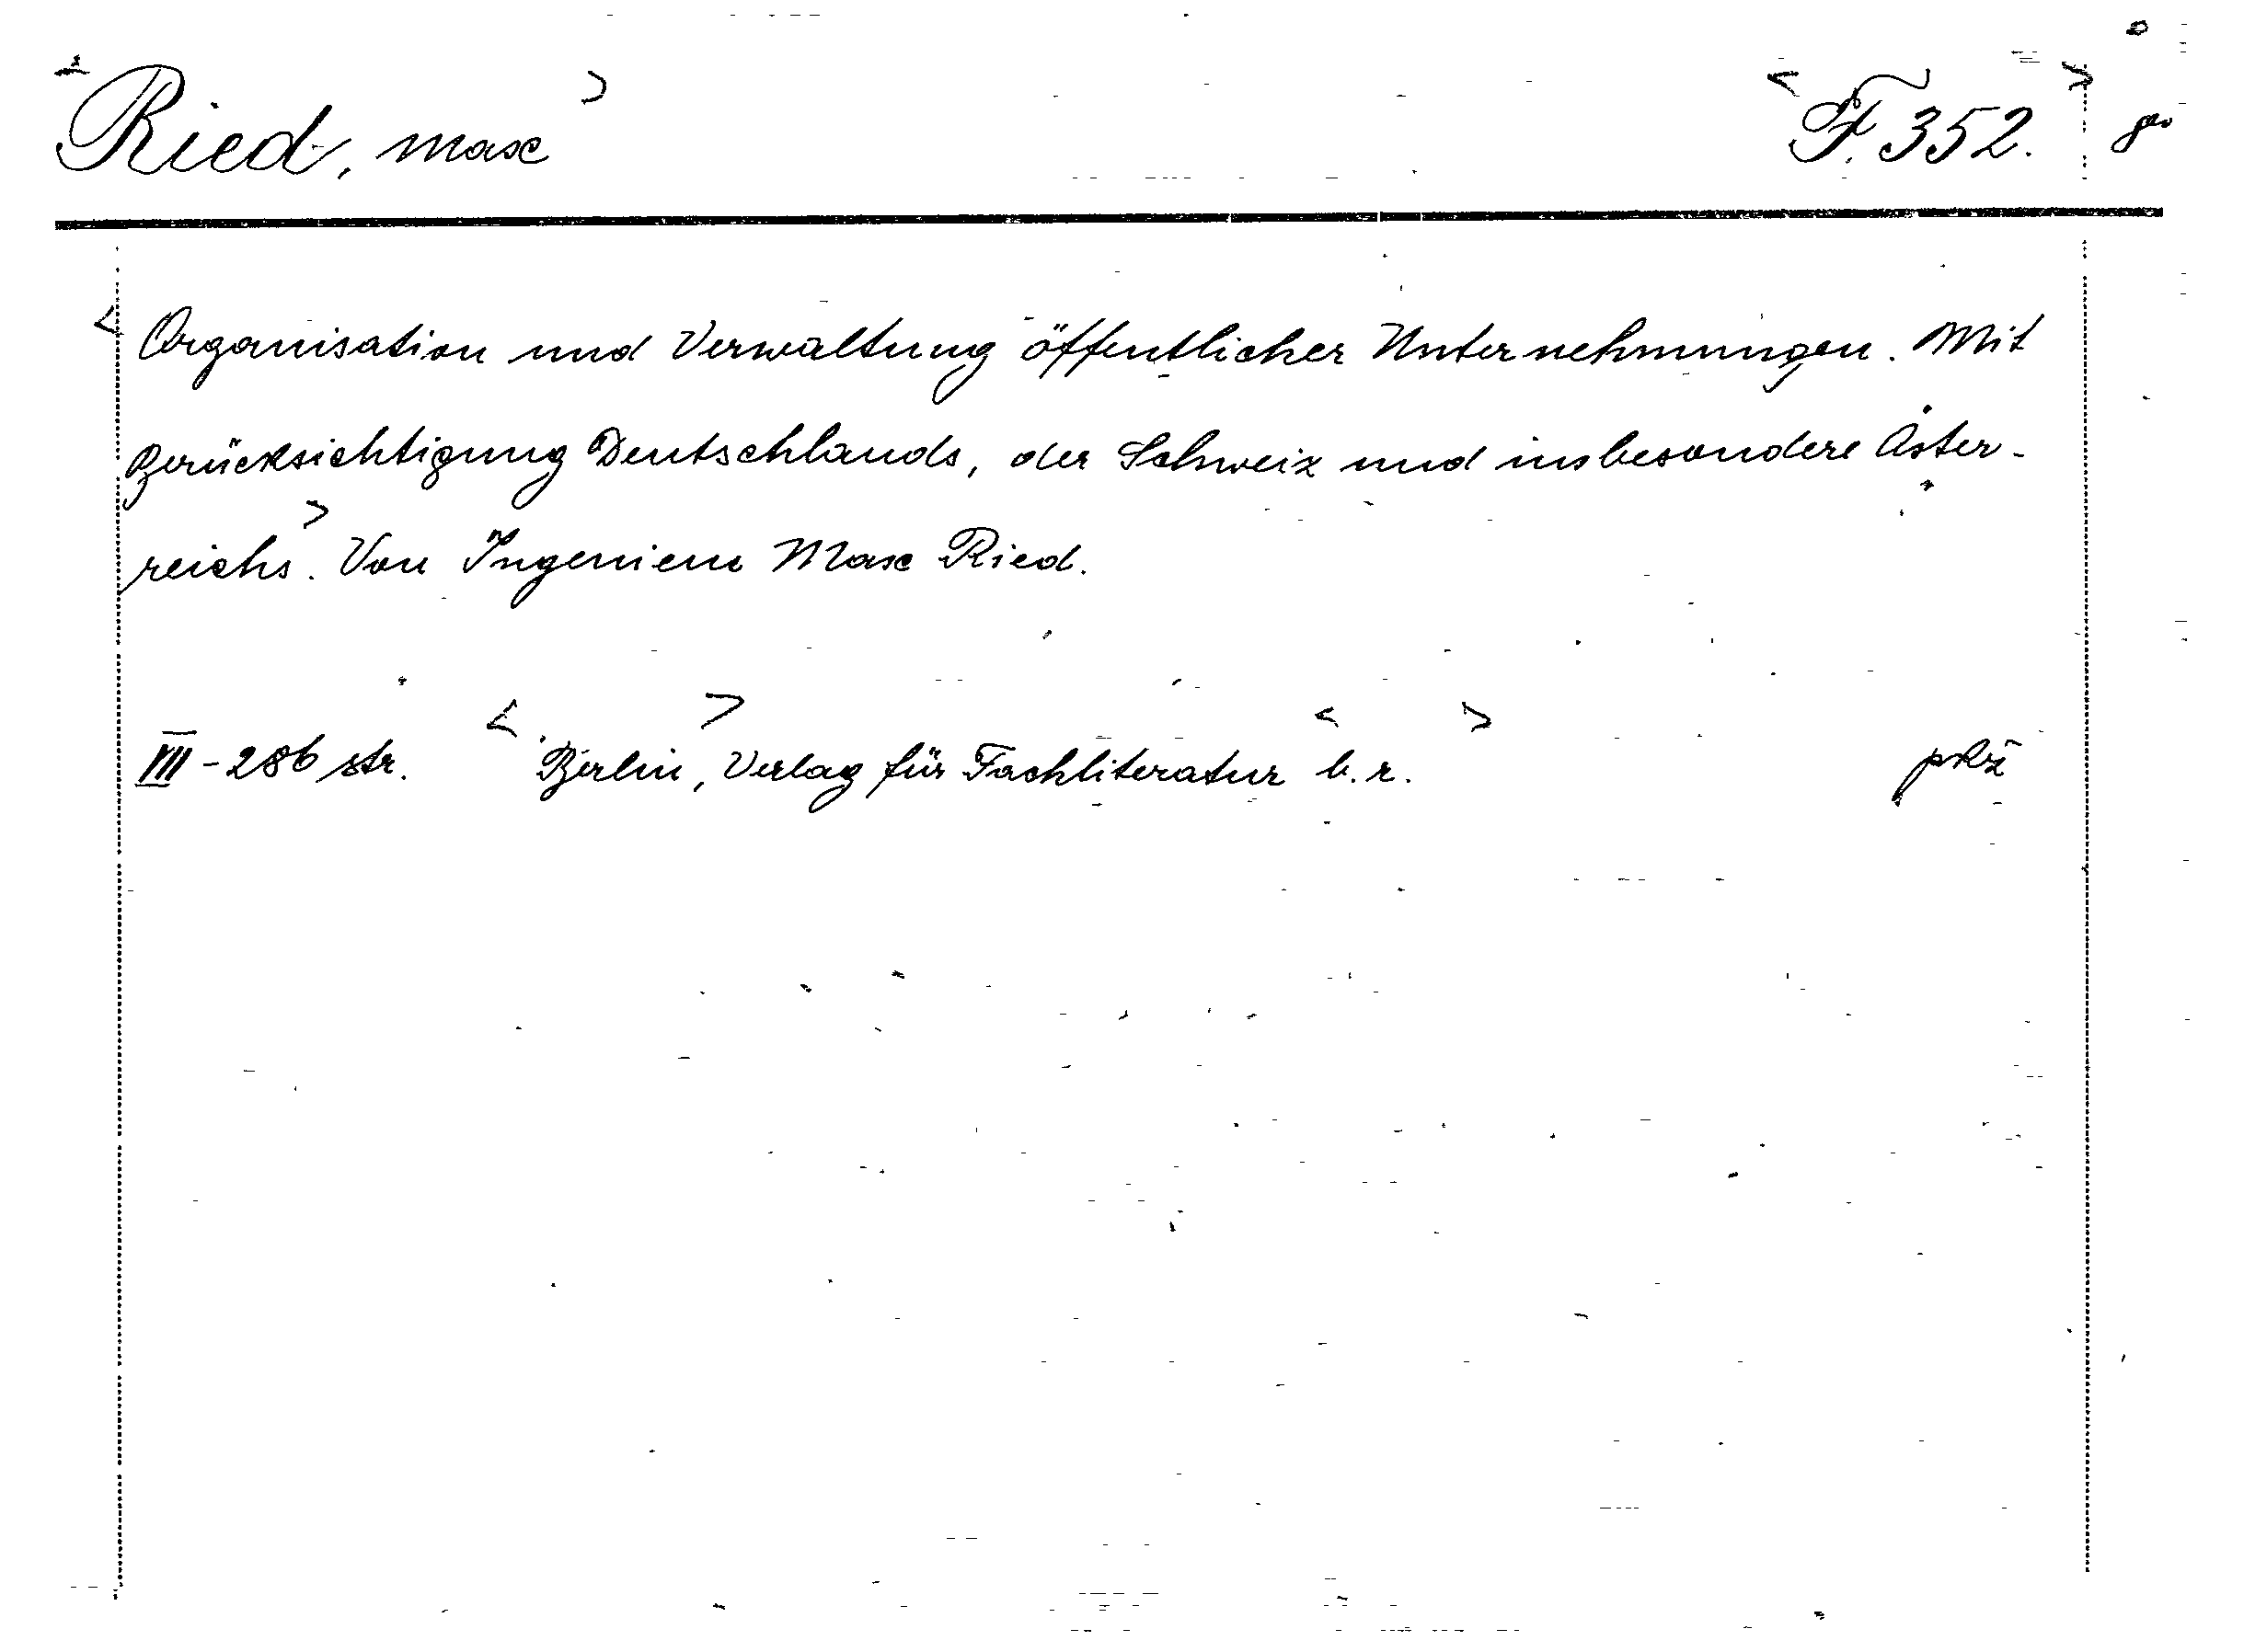 Ried, Max F. 352.
Organisation und Verwaltung öffentlicher Unternehmungen. Mit
Berücksichtigung Deutschlands, der Schweiz und insbesondere Öster-
reichs. Von Ingenieur Max Ried.
VIII - 286 str. Berlin, Verlag für Fachliteratur b. r.